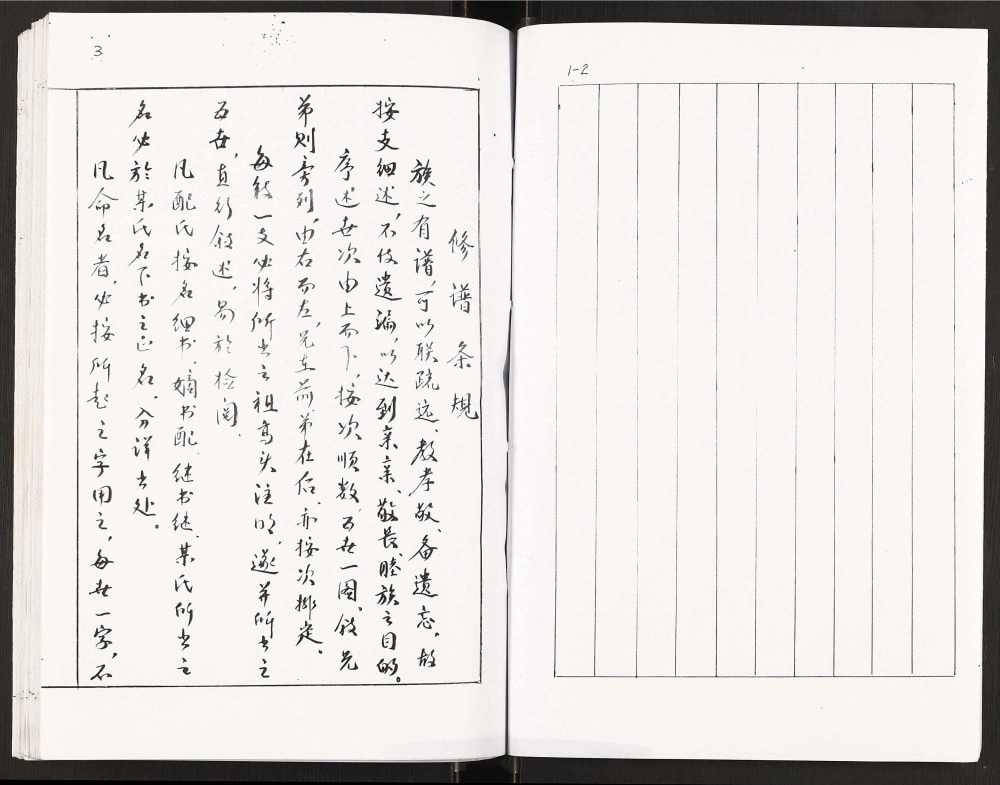 1-2
3
修谱条规
族之有谱，可以联疏远、教孝敬、备遗忘，故
按支细述，不使遗漏，以达到亲亲、敬长、睦族之目的。
序述世次由上而下，按次顺数，五世一图，叙兄
弟则旁列，由右而左，兄在前，弟在后，亦按次排定。
每叙一支必将所出之祖高头注明，遂并所出之
五世，直行叙述，易於检阅。
凡配氏按名细书，嫡书配，继书继，某氏所出之
名必於某氏名下书之正名，分详出处。
凡命名者，必按所起之字用之，每世一字，不